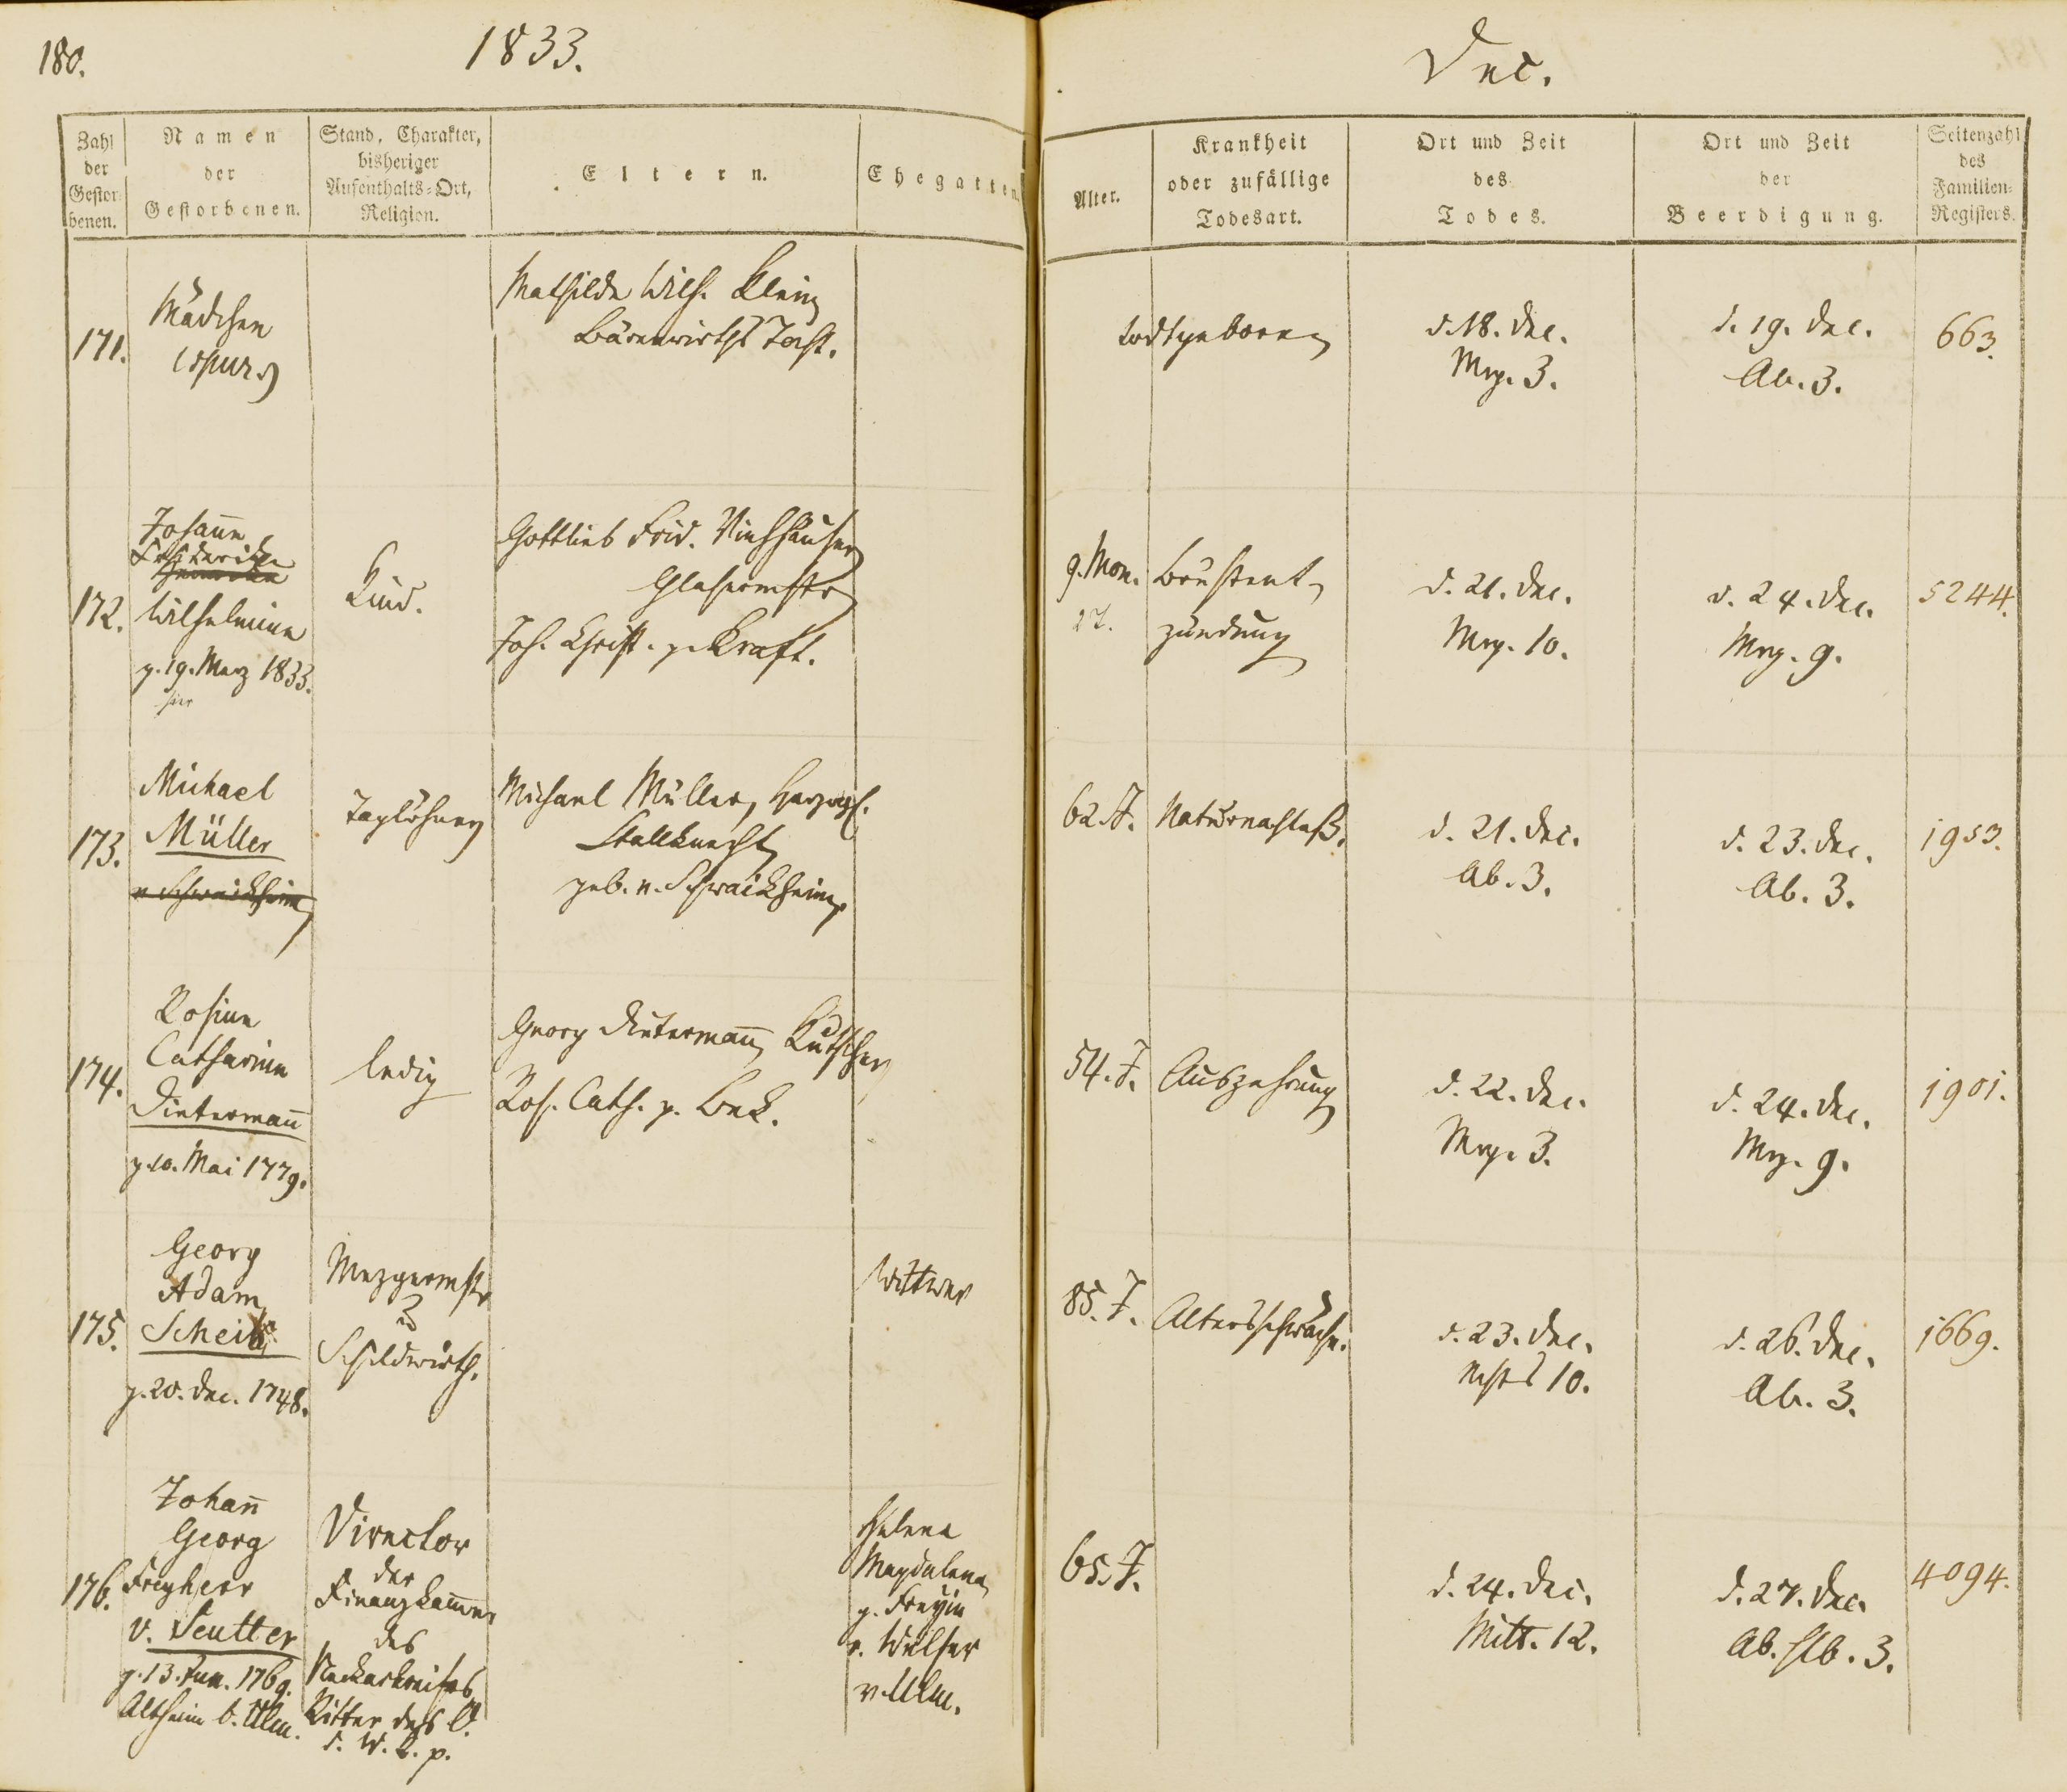 180.
1833.
Dec.
Zahl der Gestorbenen.
Namen der Gestorbenen.
Stand, Charakter, bisheriger Aufenthalts=Ort, Religion.
Eltern.
Ehegatten
Alter.
Krankheit oder zufällige Todesart.
Ort und Zeit des Todes.
Ort und Zeit der Beerdigung.
Seitenzahl des Familien-Registers.
171.
Mädchen
(spur.)
Mathilde Wilh. Klein
Bärenwirths Tocht.
todtgeboren
d. 18. Dec.
Mrg. 3.
d. 19. Dec.
Ab. 3.
663.
172.
Johanne
Friderike
Wilhelmine
g. 19. Merz 1833.
hier
Kind.
Gottlieb Frid. Viehhäuser
Glasermstr
Joh. Christ. g. Kraft.
9. Mon.
2 T.
Brustent
zündung
d. 21. Dec.
Mrg. 10.
d. 24. Dec.
Mrg. 9.
5244.
173.
Michael
Müller
v. Schwaikheim
Taglöhner
Michael Müller, Herzogl.
Stallknecht
geb. v. Schwaikheim.
62 J.
Naturnachlaß.
d. 21. Dec.
Ab. 3.
d. 23. Dec.
Ab. 3.
1953.
174.
Rosine
Catharine
Dietermañ
g. 10. Mai 1779.
ledig
Georg Dietermañ Kutscher
Ros. Cath. g. Bek.
54. J.
Auszehrung
d. 22. Dec.
Mrg. 3.
d. 24. Dec.
Mrg. 9.
1901.
175.
Georg
Adam
g. 20. Dec. 1748.
Mezgermstr
u
Schildwirth.
Wittwer
85. J.
Altersschwäche.
d. 23. Dec.
Nchts 10.
d. 26. Dec.
Ab. 3.
1669.
176.
Johañ
Georg
Freyherr
v. Seutter
g. 13. Jun. 1769.
Altheim b. Ulm.
Director
der
Finanzkam̃er
des
Neckarkreises
Ritter des O.
d. W. K. p.
Helena
Magdalena
g. Freyin
v. Welser
v. Ulm.
65. J.
d. 24. Dec.
Mitt. 12.
d. 27. Dec.
Ab. hlb. 3.
4094.